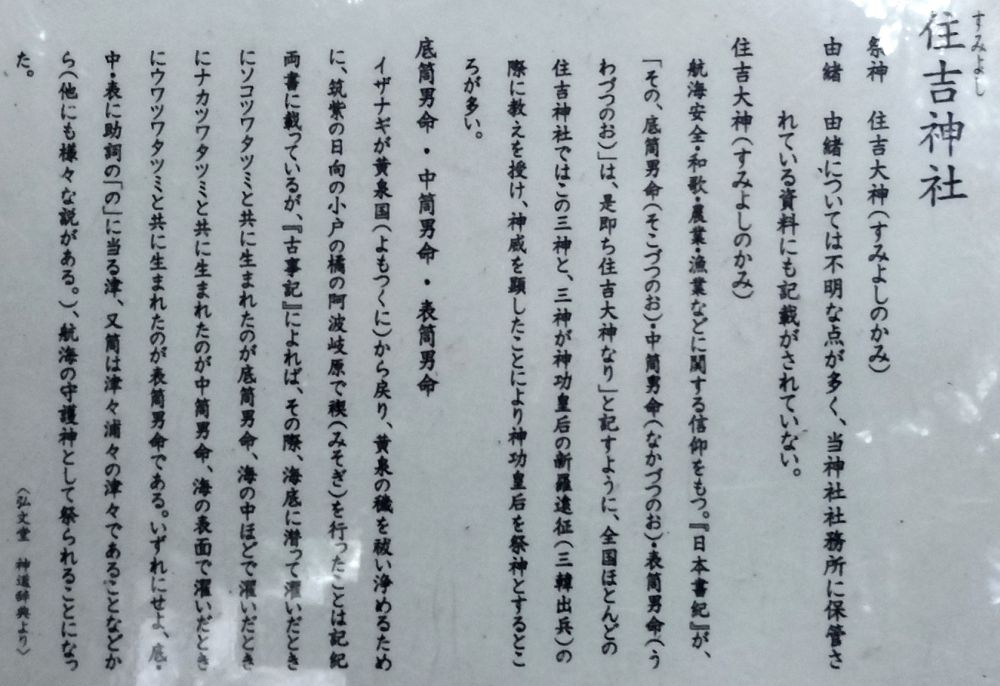 すみよし
住吉神社
祭神　住吉大神(すみよしのかみ)
由緒　由緒については不明な点が多く、当神社社務所に保管さ
れている資料にも記載がされていない。
住吉大神(すみよしのかみ)
航海安全・和歌・農業・漁業などに関する信仰をもつ。『日本書紀』が、
「その、底筒男命(そこづつのお)・中筒男命(なかづつのお)・表筒男命(う
わづつのお)」は、是即ち住吉大神なり」と記すように、全国ほとんどの
住吉神社ではこの三神と、三神が神功皇后の新羅遠征(三韓出兵)の
際に教えを授け、神威を顕したことにより神功皇后を祭神とするとこ
ろが多い。
底筒男命・中筒男命・表筒男命
イザナギが黄泉国(よもつくに)から戻り、黄泉の穢を祓い浄めるため
に、筑紫の日向の小戸の橘の阿波岐原で禊(みそぎ)を行ったことは記紀
両書に載っているが、『古事記』によれば、その際、海底に潜って濯いだとき
にソコツワタツミと共に生まれたのが底筒男命、海の中ほどで濯いだとき
にナカツワタツミと共に生まれたのが中筒男命、海の表面で濯いだとき
にウワツワタツミと共に生まれたのが表筒男命である。いずれにせよ、底・
中・表に助詞の「の」に当る津、又筒は津々浦々の津々であることなどか
ら(他にも様々な説がある。)、航海の守護神として祭られることになっ
た。
〈弘文堂　神道辞典より〉